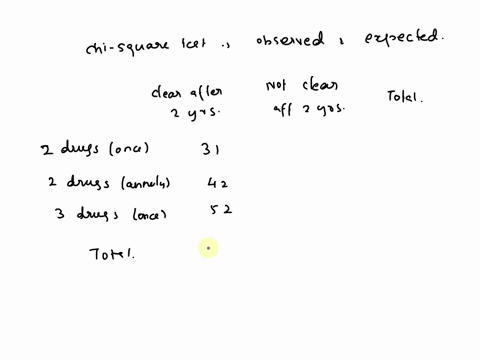 chi-square test., observed, expected.
clear after 2 yrs. not clear aff 2 yrs. Total.
2 drugs (once) 31
2 drugs (annuly) 42
3 drugs (once) 52
Total.